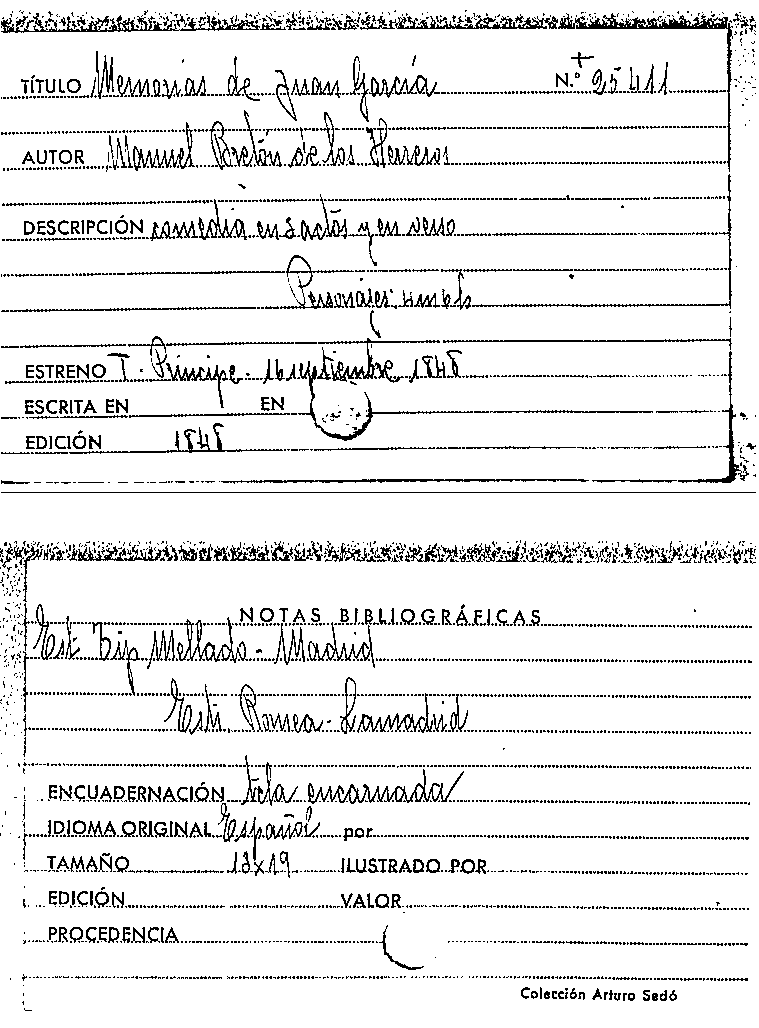 TÍTULO Memorias de Juan García N.º + 25411
AUTOR Manuel Bretón de los Herreros
DESCRIPCIÓN comedia en 3 actos y en verso
Personajes: 4 m 6 h
ESTRENO T. Príncipe. 16 septiembre 1848
ESCRITA EN EN
EDICIÓN 1848
NOTAS BIBLIOGRÁFICAS
Est Tip Mellado - Madrid
Estr. Romea - Lamadrid
ENCUADERNACIÓN tela encarnada
IDIOMA ORIGINAL Español por
TAMAÑO 13x19 ILUSTRADO POR
EDICIÓN VALOR
PROCEDENCIA
Colección Arturo Sedó